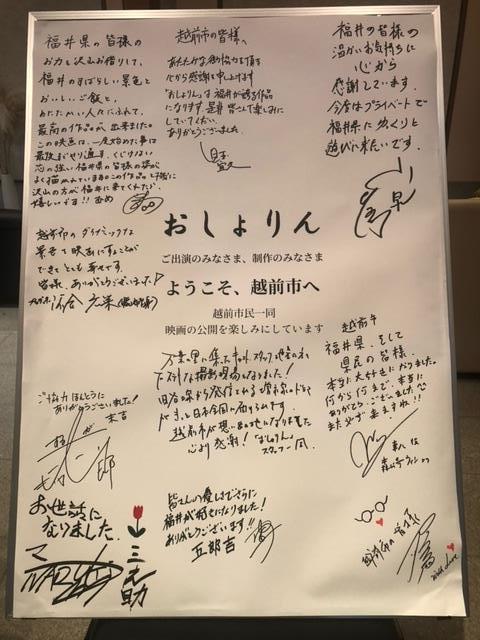 福井県の皆様の
お力を沢山お借りして、
福井のすばらしい景色と
おいしいご飯と、
あたたかい人々にふれて、
最高の作品が出来ました
この映画は、一度始めた事は
最後までやり通す、くじけない
芯の強い福井県の皆様の姿が
沢山の方が福井に来てくれたら
嬉しいです!!
越前市の皆様へ
あたたかな御協力を頂き
心から感謝を申し上げます
「おしょりん」は福井が誇る作品
になります。是非皆さんで楽しみに
していてください。
ありがとうございました。
福井の皆様の
温かいお気持ちに
心から
感謝しています。
今度はプライベートで
福井県に ゆっくりと
遊びに来たいです。
おしょりん
ご出演のみなさま、制作のみなさま
ようこそ、越前市へ
越前市民一同
映画の公開を楽しみにしています
越前市のダイナミックな
景色で映画にすることが
できてとても幸せです。
皆様、ありがとうございました!
万葉の里に集ったキャスト、スタッフ、
旧谷口家から発信される増永のドラマ
がきっと日本全国に
越前市が想い出の地になりました
心より感謝!「おしょりん」
スタッフ一同
越前市
福井県、そして
県民の皆様、
本当に大好きになりました。
何から何まで、本当に
ありがとうございました
また必ず来ますね!!
ご協力ほんとうに
ありがとうございました!
末吉
お世話に
なりました
三之助
皆さんの優しさでさらに
福井が好きになりました!
ありがとうございます!!
五郎吉
越前市の皆様
with love